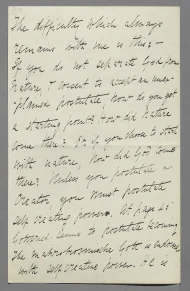 The difficulty which always
remains with me is this:—
If you do not separate God from
Nature & consent to accept an unex-
plained postulate, how do you get
a starting point? How did Nature
come there? Or if you choose to start
with Nature, how did God come
there? Unless you postulate a
Creator you must postulate
self creating power. At page 45
seems to postulate
The
with self creative power. He is